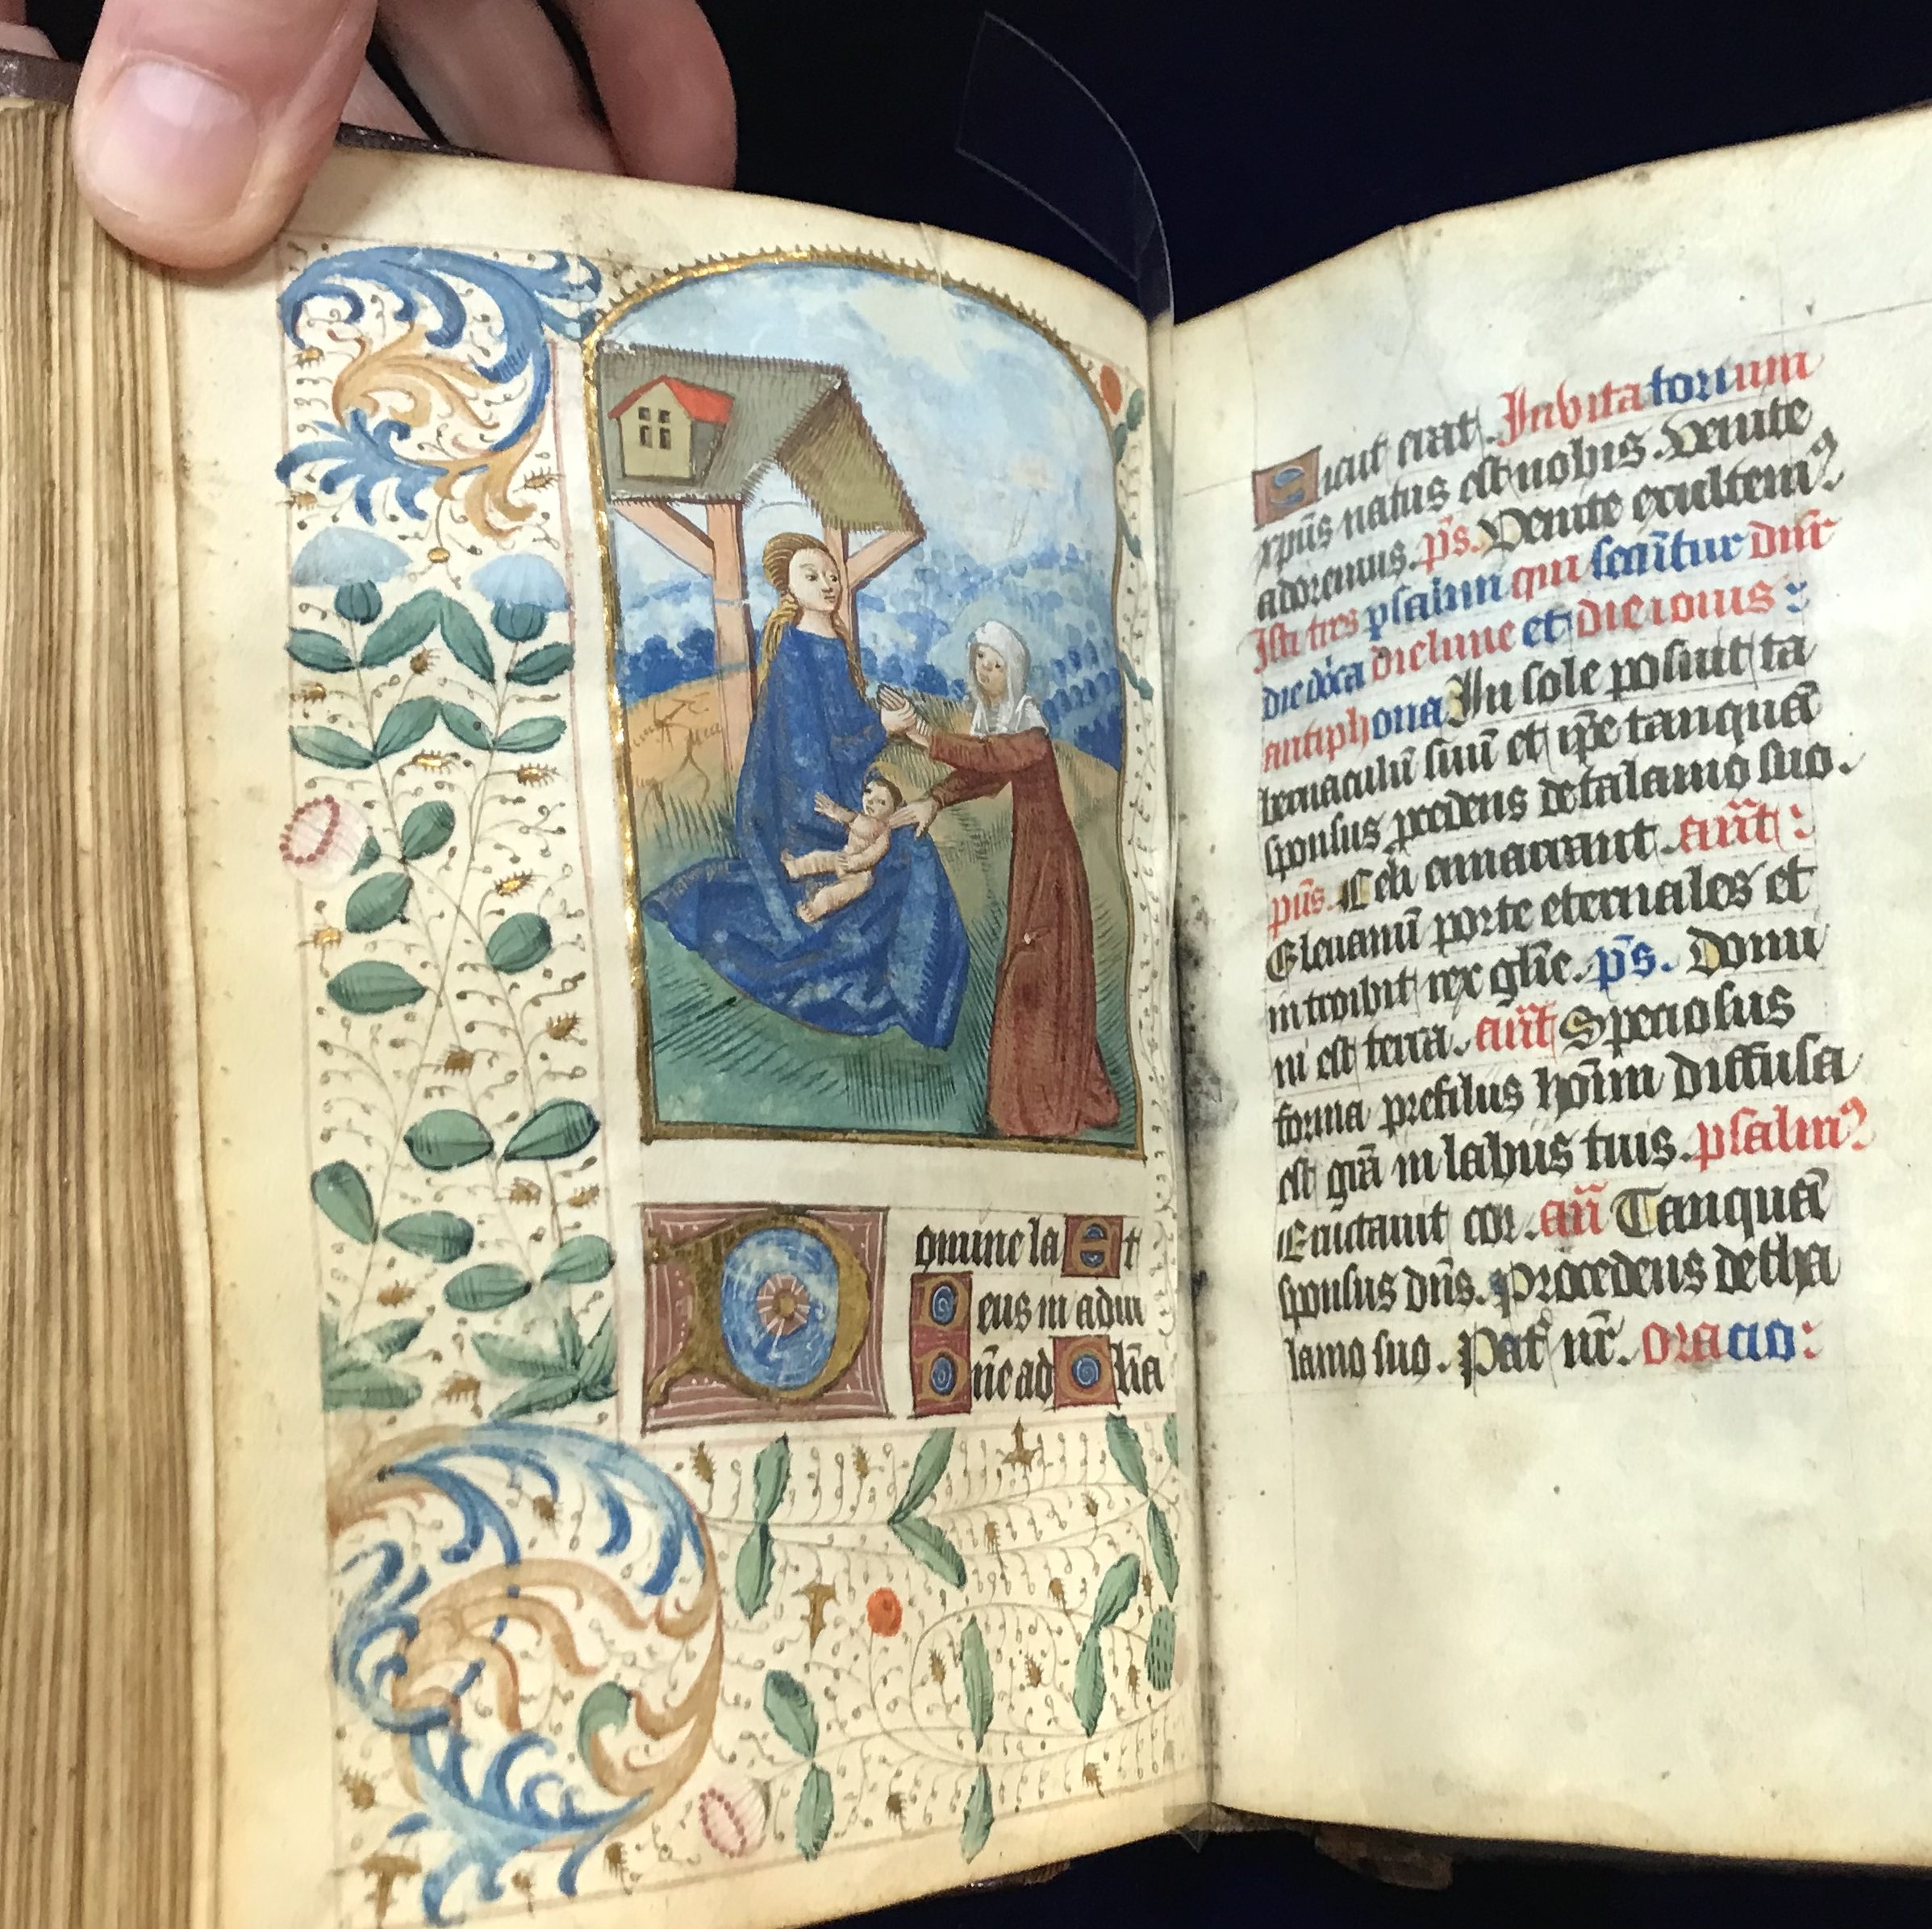 Domine la Et
Deus in adiu
Dn̄e ad Glīa
Sicut erat. Invitatorium
xpūs natus est nobis. Venite
adoremus. ps̄. Venite exultemꝰ
Isti tres psalmi qui secūtur dnr̄
die dn̄ica die lune et die iouis:
antiphona In sole posuit ta
bernaculū suū et ip̄e tanquā
sponsus p̲cedens de talamo suo.
ps̄. Celi enarrant. ant̄:
Eleuamī porte eternales et
introibit rex glīe. ps̄. Domi
ni est terra. ant̄ Speciosus
forma pre filiis hoīm diffusa
est grā in labiis tuis. psalmꝰ
Eructauit cor. an̄ Tanquā
sponsus dn̄s. Procedens de tha
lamo suo. Pat̄ nr̄. oracio: